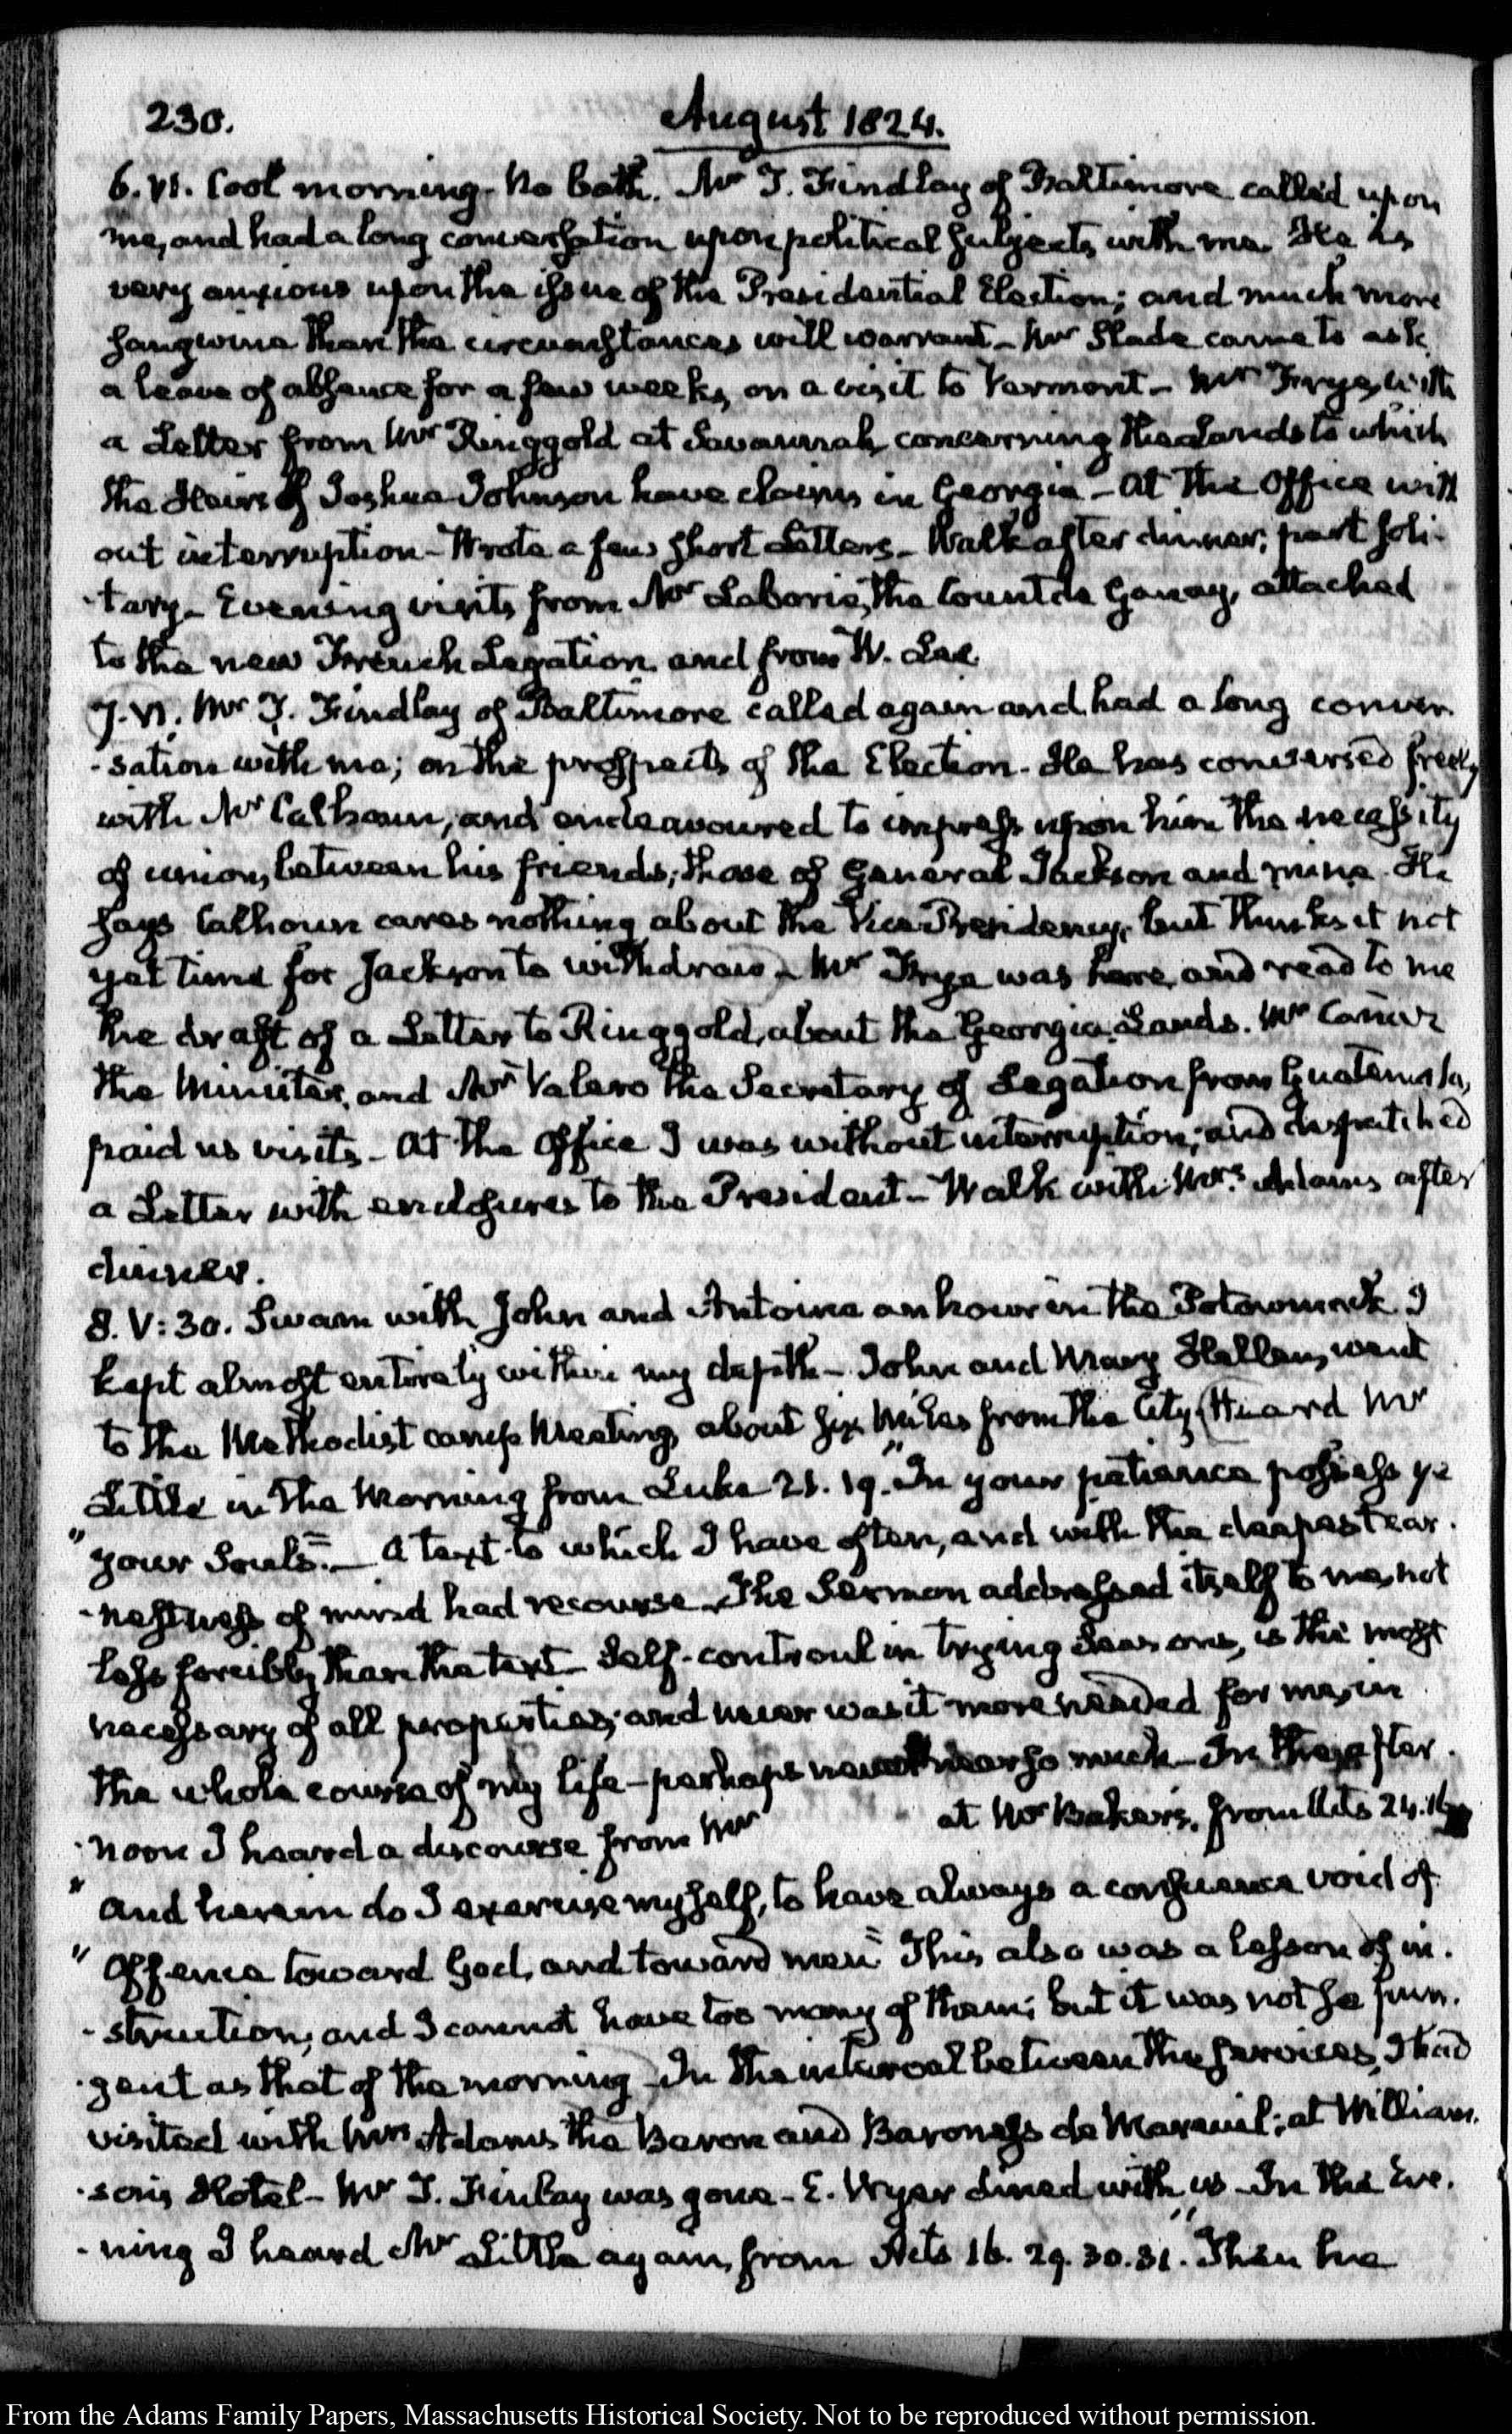 230.
August 1824.
6. VI. Cool morning. No bath. Mr J. Findlay of Baltimore called upon
me, and had a long conversation upon political subjects with me. He is
very anxious upon the issue of the Presidential Election; and much more
sanguine than the circumstances will warrant – Mr Slade came to ask
a leave of absence for a few weeks, on a visit to Vermont – Mr Frye, with
a Letter from Mr Ringgold at Savannah concerning the Lands to which
the Heirs of Joshua Johnson have claims in Georgia – At the Office with
out interruption – Wrote a few short Letters – Walk after dinner; part soli-
-tary – Evening visits from Mr Laborie, the Count de Ganay, attached
to the new French Legation and from W. Lee.
7. VI. Mr J. Findlay of Baltimore called again and had a long conver
-sation with me; on the prospects of the Election. He has conversed freely
with Mr Calhoun, and endeavoured to impress upon him the necessity
of union, between his friends; those of General Jackson and mine. He
says Calhoun cares nothing about the Vice Presidency, but thinks it not
yet time for Jackson to withdraw – Mr Frye was here, and read to me
the draft of a Letter to Ringgold, about the Georgia Lands. Mr Cañaz
the Minister, and Mr Valero the Secretary of Legation from Guatemala,
paid us visits – At the Office I was without interruption; and dispatched
a Letter with enclosures to the President – Walk with Mrs. Adams after
dinner.
8. V:30. Swam with John and Antoine an hour in the Potowmack I
kept almost entirely within my depth – John and Mary Hellen, went
to the Methodist camp Meeting, about six Miles from the City, I heard Mr
Little in the Morning from Luke 21. 19. "In your patience possess ye
"your Souls." – A text to which I have often, and with the deepest ear-
-nestness of mind had recourse – The Sermon addressed itself to me, not
less forcibly than the text – Self-controul in trying Seasons, is the most
necessary of all properties; and never was it more needed for me, in
the whole course of my life – perhaps never near so much – In the after
-noon I heard a discourse from Mr at Mr Baker's, from Acts 24. 16
"And herein do I exercise myself, to have always a conscience void of
"Offence toward God, and toward men" This also was a lesson of in-
-struction, and I cannot have too many of them; but it was not so pun-
-gent as that of the morning – In the interval between the services, I had
visited with Mrs Adams the Baron and Baroness de Mareuil; at William-
-son's Hotel – Mr J. Finlay was gone – E. Wyer dined with us – In the Eve-
-ning I heard Mr Little again, from Acts 16. 29. 30. 31. "Then he
From the Adams Family Papers, Massachusetts Historical Society. Not to be reproduced without permission.